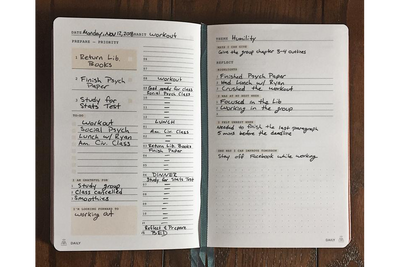 DATE Monday, Nov 12, 2018 workout
PREPARE - PRIORITY
Return Lib. Books
Finish Psych Paper
Study for Stats Test
workout
Social Psych
Lunch w/ Ryan
Am. Civ. Class
I AM GRATEFUL FOR
Study group
Class cancelled
Smoothies
I'M LOOKING FORWARD TO
working out
DAILY
workout
Social Psych Class
LUNCH
Am. Civ. Class
Return Lib. Books
Finish Paper
DINNER
Study for Stats Test
Reflect & Prepare
BED
Humility
Give the group chapter 3-4 outlines
REFLECT
Finished Psych Paper
Had Lunch w/ Ryan
Crushed the workout
Focused in the Lib
Working in the group
Needed to finish the last paragraph
5 mins before the deadline
Stay off Facebook while working.
DAILY